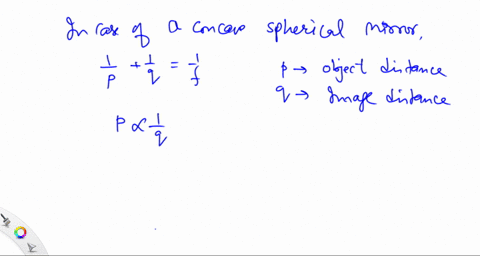 In case of a concave spherical mirror,
1/p + 1/q = 1/f
p → object distance
q → Image distance
P ∝ 1/q